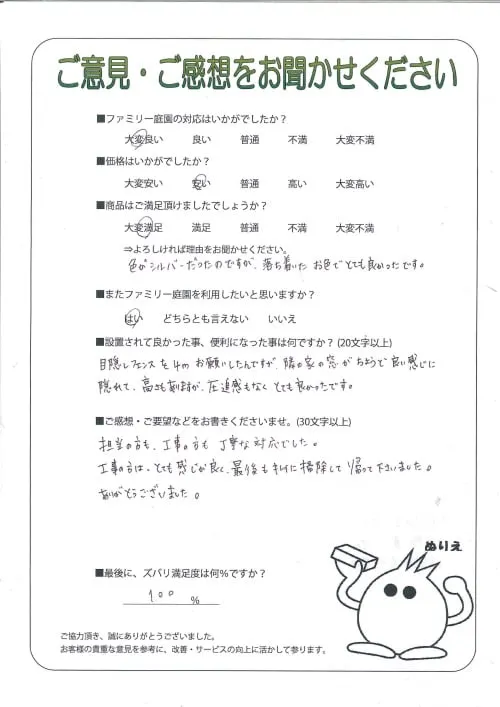 ご意見・ご感想をお聞かせください
■ファミリー庭園の対応はいかがでしたか？
大変良い 良い 普通 不満 大変不満
■価格はいかがでしたか？
大変安い 安い 普通 高い 大変高い
■商品はご満足頂けましたでしょうか？
大変満足 満足 普通 不満 大変不満
⇒よろしければ理由をお聞かせください。
色がシルバーだったのですが、落ち着いたお色でとても良かったです。
■またファミリー庭園を利用したいと思いますか？
はい どちらとも言えない いいえ
■設置されて良かった事、便利になった事は何ですか？(20文字以上)
目隠しフェンスを4mお願いしたんですが、隣の家の窓がちょうど良い感じに
隠れて、高さも有りますが、圧迫感もなくとても良かったです。
■ご感想・ご要望などをお書きくださいませ。(30文字以上)
担当の方も、工事の方も丁寧な対応でした。
工事の方は、とても感じが良く、最後もキレイに掃除して帰って下さいました。
ありがとうございました。
ぬりえ
■最後に、ズバリ満足度は何％ですか？
100 %
ご協力頂き、誠にありがとうございました。
お客様の貴重な意見を参考に、改善・サービスの向上に活かして参ります。